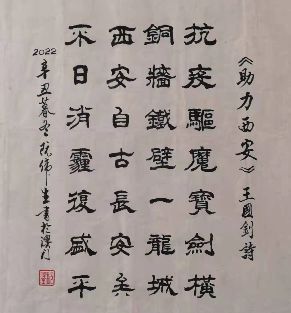 《助力西安》王國劍詩
抗疫驅魔寶劍橫
銅牆鐵壁一龍城
西安自古長安矣
不日消霾復盛平
2022辛丑暮冬偉生書於澳門